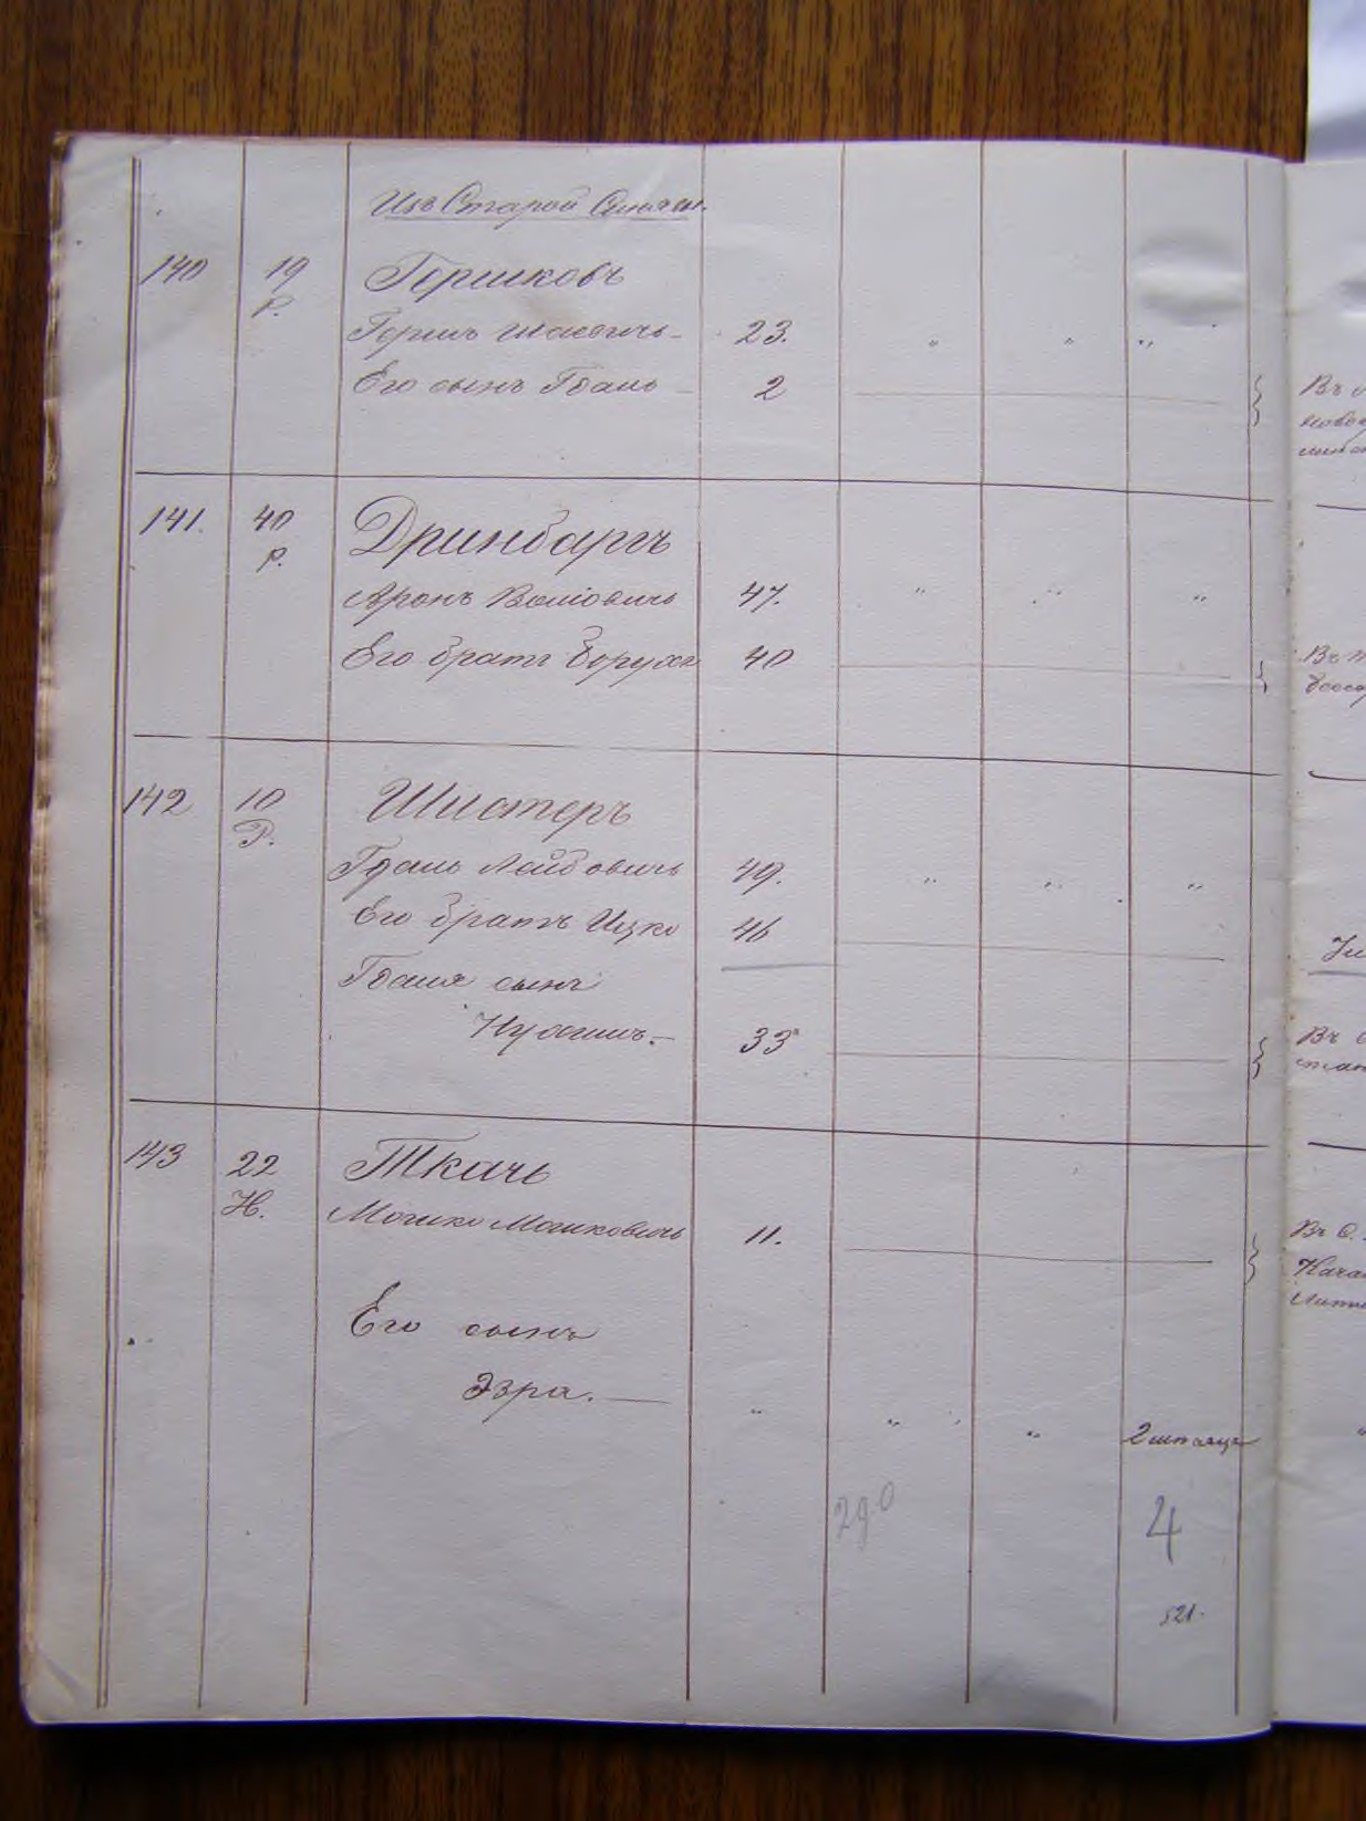 Изъ Старой
140 19 Гершковъ
Р.
Гершъ 23. " " "
Его сынъ Гдаль 2
141. 40 Дринбаргъ
Р.
Аронъ Волiовичъ 47. " " "
Его братъ Борухъ 40
142 10 Шистеръ
Р.
Гдаль Лейбовичъ 49. " " "
Его братъ Ицко 46
Гдаля сынъ
Нухимъ. 33
143 22 Ткачъ
Н.
Мошко Мошковичъ 11.
Его сынъ
Эзра. " " " 2 мѣсяца
4
521.
Въ
Въ
Въ
Въ О.